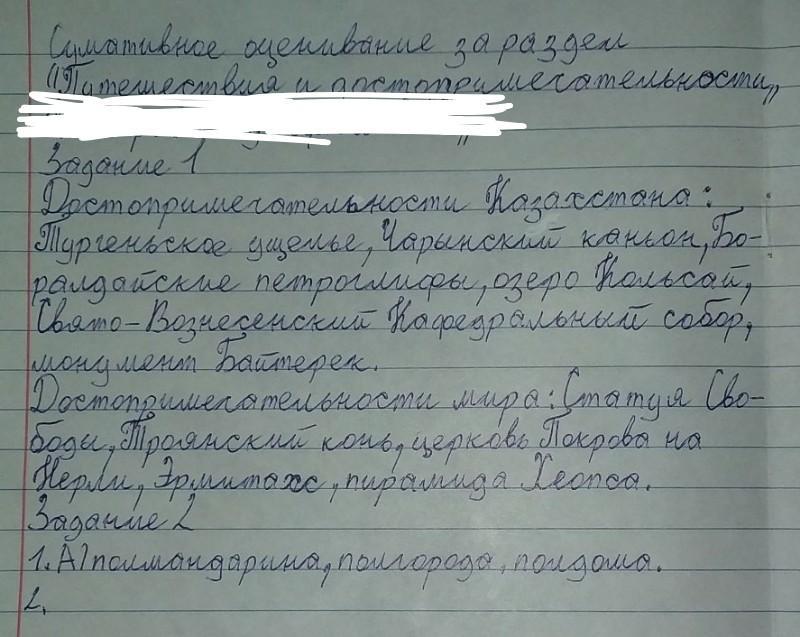 Сумативное оценивание за раздел
"Путешествия и достопримечательности„
Задание 1
Достопримечательности Казахстана:
Тургеньское ущелье, Чарынский каньон, Бо-
ралдайские петроглифы, озеро Кольсай,
Свято-Вознесенский Кафедральный собор,
монумент Байтерек.
Достопримечательности мира: Статуя Сво-
боды, Троянский конь, церковь Покрова на
Нерли, Эрмитаж, пирамида Хеопса.
Задание 2
1. А) полмандарина, полгорода, полдома.
2.